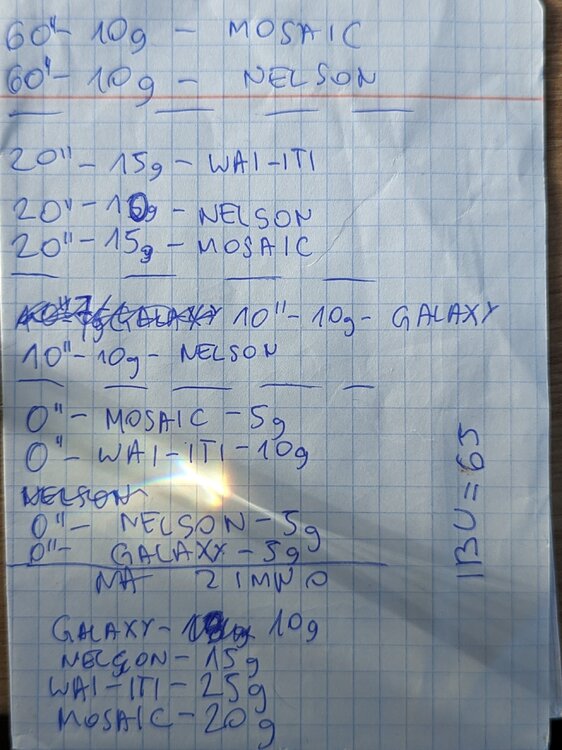 60" - 10g - MOSAIC
60" - 10g - NELSON
20" - 15g - WAI-ITI
20" - 10g - NELSON
20" - 15g - MOSAIC
10" - 10g - GALAXY
10" - 10g - NELSON
0" - MOSAIC - 5g
0" - WAI-ITI - 10g
NELSON
0" - NELSON - 5g
0" - GALAXY - 5g
NA ZIMNO
GALAXY - 10g
NELSON - 15g
WAI-ITI - 25g
MOSAIC - 20g
IBU = 65